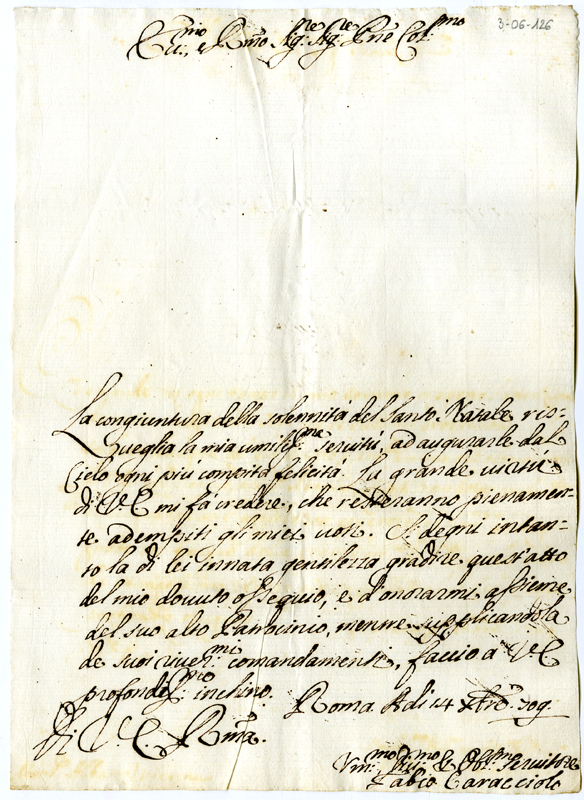 3-06-126
Ecc.mo, e R.mo Sig.re Sig.re P.ne Col.mo
La congiuntura della solennità del Santo Natale ris-
ueglia la mia umiliss.ma seruitù ad augurarle dal
Cielo ogni più compita felicità. La grande uirtù
di V. E. mi fà credere, che resteranno pienamen-
te adempiti gli miei uoti. Si degni intan-
to la di lei innata gentilezza gradire quest'atto
del mio douuto ossequio, e d'onorarmi assieme
del suo alto Patrocinio, mentre supplicandola
de suoi riuer.mi comandamenti, faccio a V. E.
profondiss.mo inchino. Roma li di 14 Xbre 709
Di V. E. R.ma
Um.mo Obb.mo Seruitore
Fabio Caracciolo